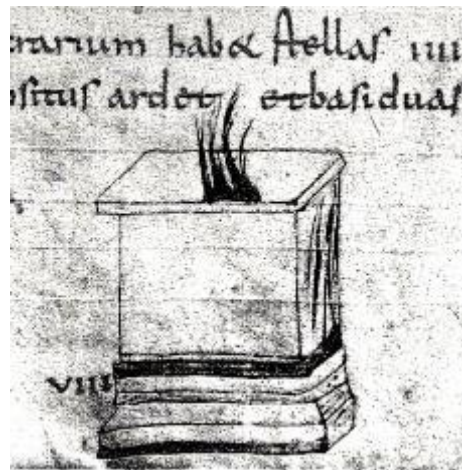 crarium hab& stellas iiii
ositus ardet etbasiduas
VIII